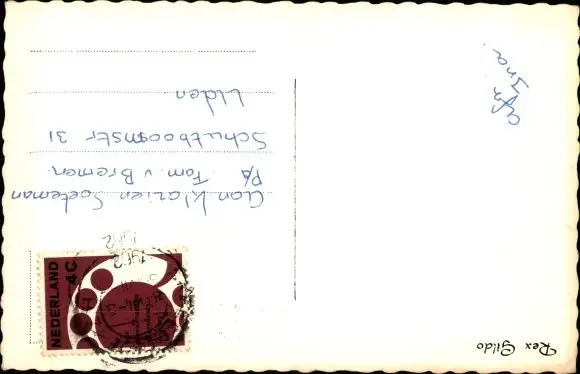 Rex Gildo
Afz
Ina
NEDERLAND 4C
1962
1962
Aan Klazien Soeteman
P/a Fam. v Bremen.
Schutboomstr 31
Uden